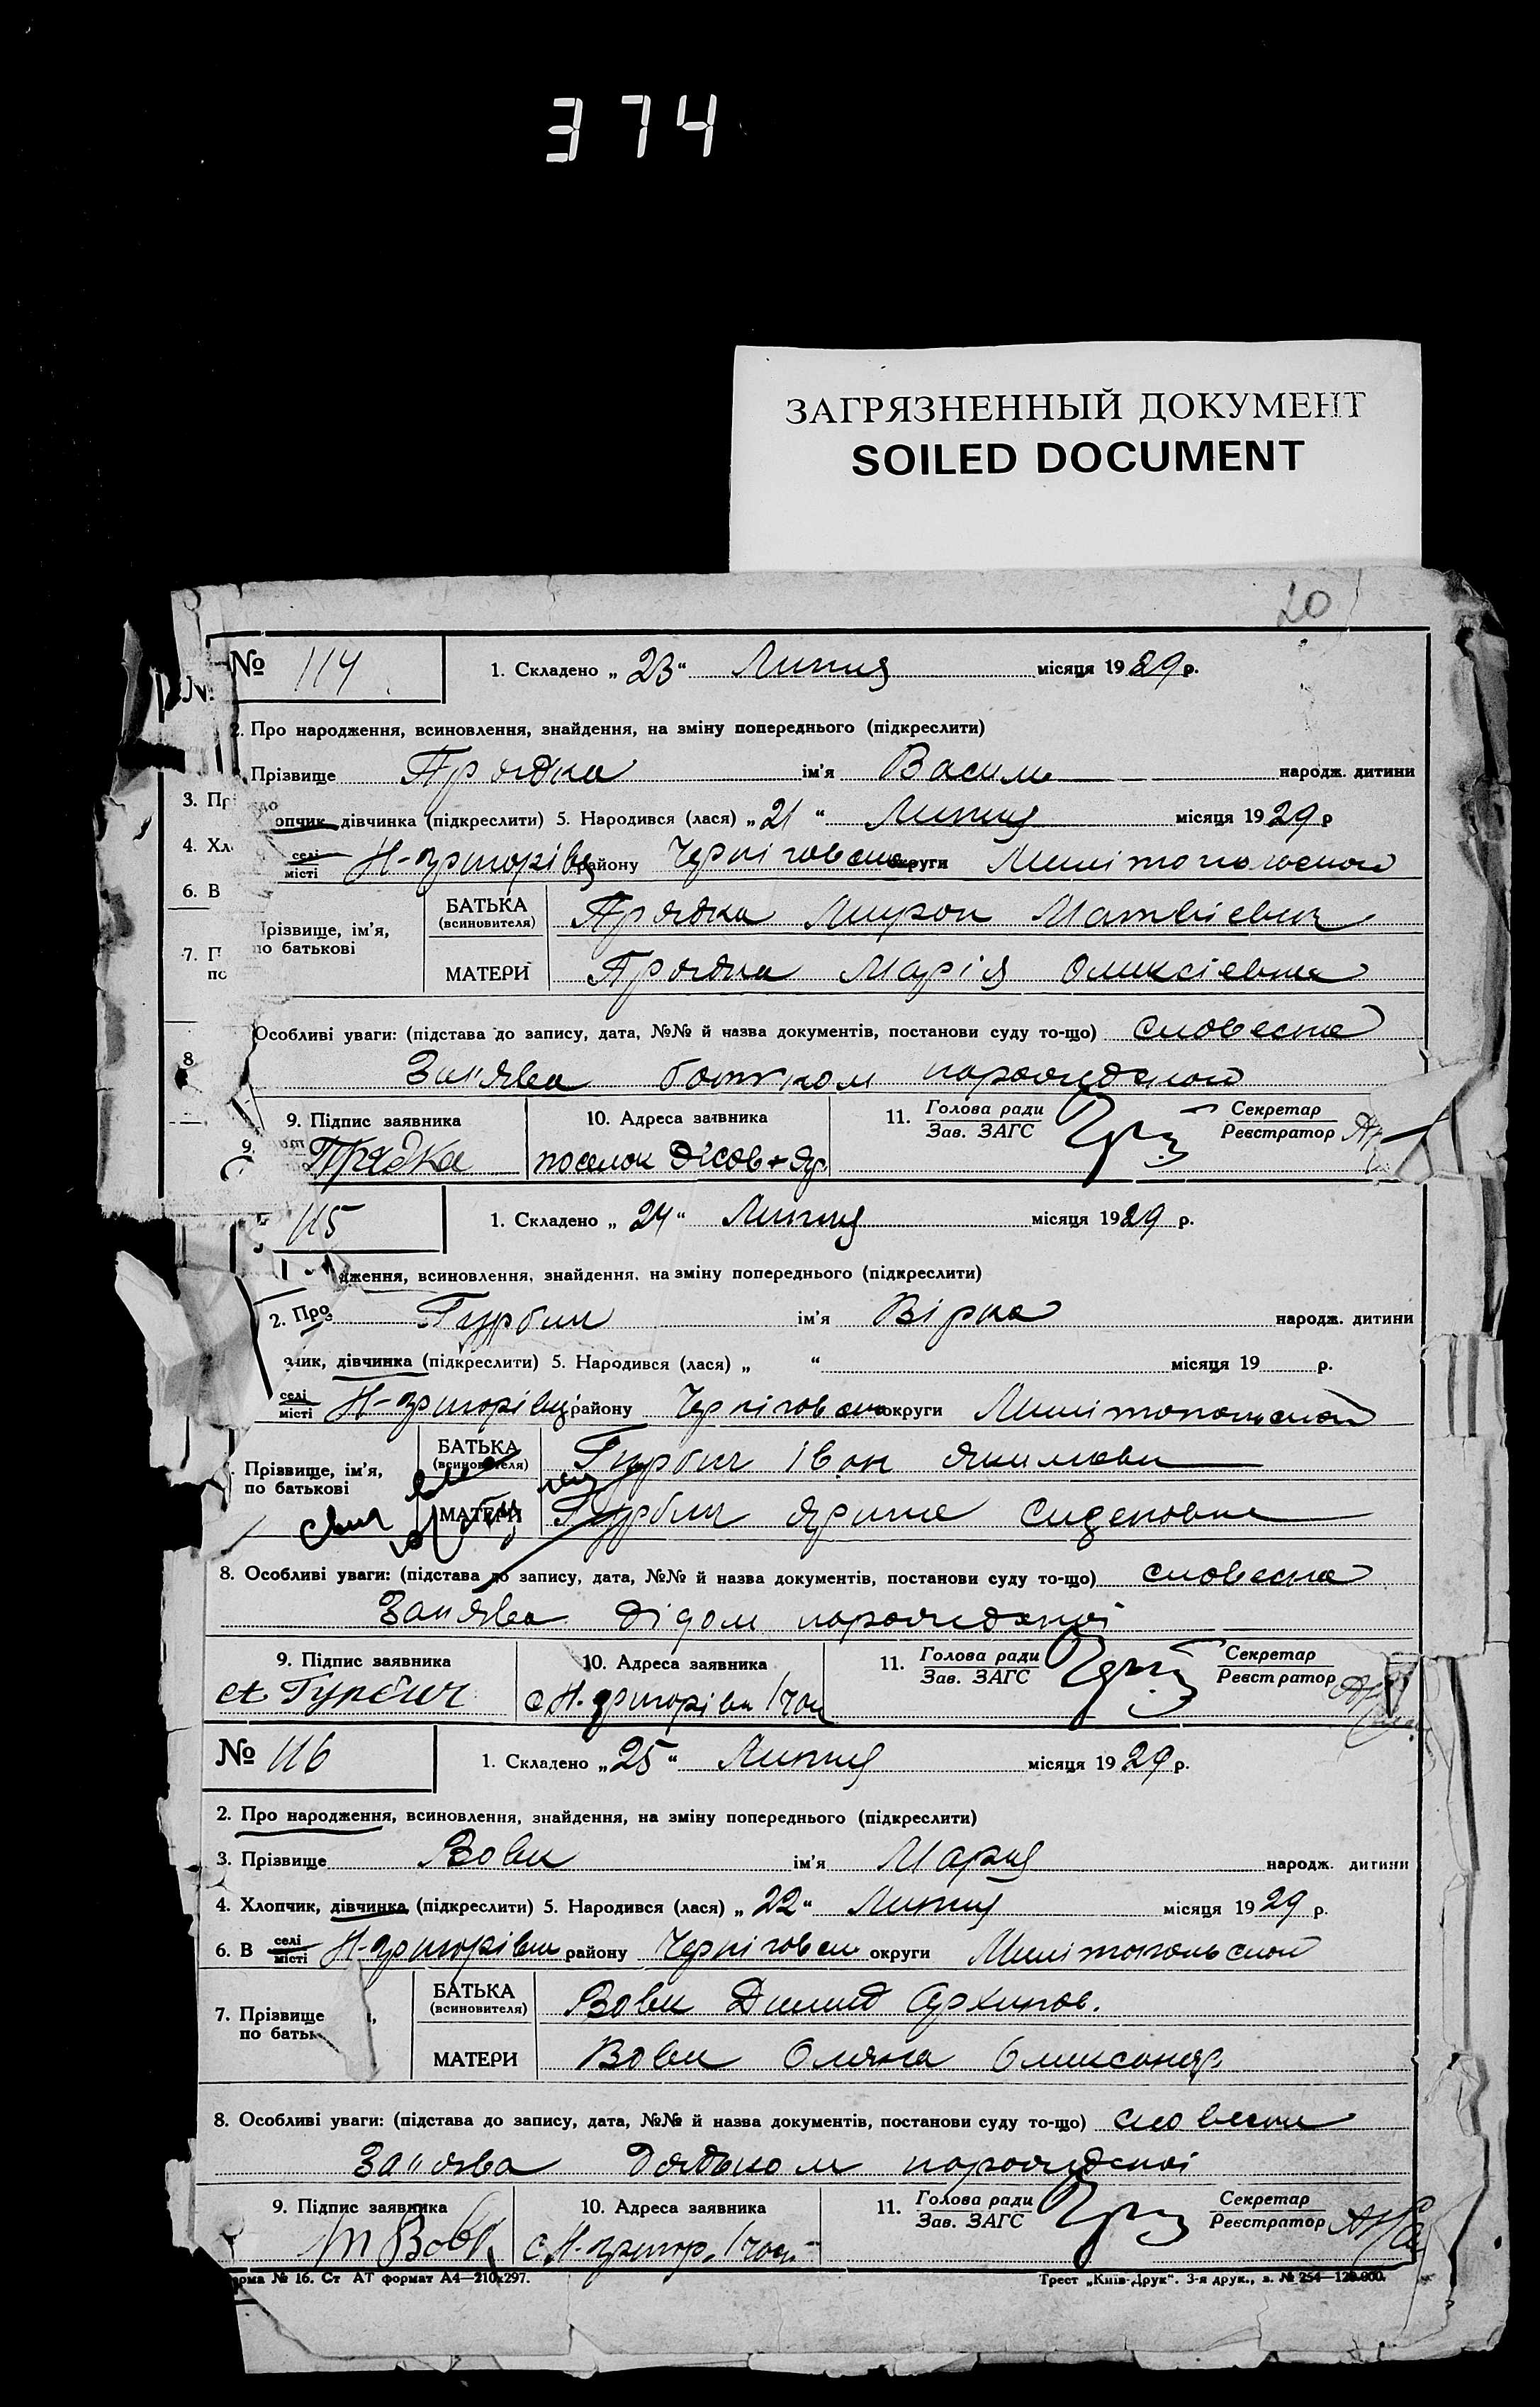 374
ЗАГРЯЗНЕННЫЙ ДОКУМЕНТ
SOILED DOCUMENT
20
№ 114 1. Складено „23“ Липця місяця 1929 р.
2. Про народження, всиновлення, знайдення, на зміну попереднього (підкреслити)
Прізвище Прядка ім'я Василь народж. дитини
опчик, дівчинка (підкреслити) 5. Народився (лася) „21“ Липця місяця 1929 р
селі місті Н-григорівц району Черніговськ округи Милітопольской
Прізвище, ім'я, по батькові БАТЬКА (всиновителя) Прядка Мирон Матвієвич
МАТЕРИ Прядка Марія Оликсієвна
Особливі уваги: (підстава до запису, дата, №№ й назва документів, постанови суду то-що) словесна
Зап'ява батьком
9. Підпис заявника 10. Адреса заявника 11. Голова ради Зав. ЗАГС Секретар Реєстратор
Прядка поселок
115 1. Складено „24“ Липця місяця 1929 р.
2. Про дження, всиновлення, знайдення, на зміну попереднього (підкреслити)
Гурбич ім'я Вірка народж. дитини
чик, дівчинка (підкреслити) 5. Народився (лася) „ “ місяця 19 р.
селі місті Н-григорівці району Черніговськ округи Милітопольской
Прізвище, ім'я, по батькові БАТЬКА (всиновителя) Гурбич Іван Якимови
МАТЕРИ Гурбич Ярина
8. Особливі уваги: (підстава до запису, дата, №№ й назва документів, постанови суду то-що) словесна
Зап'ява дідом
9. Підпис заявника 10. Адреса заявника 11. Голова ради Зав. ЗАГС Секретар Реєстратор
Гурбич с Н-григорівк
№ 116 1. Складено „25“ Липця місяця 1929 р.
2. Про народження, всиновлення, знайдення, на зміну попереднього (підкреслити)
3. Прізвище Вовк ім'я Мария народж. дитини
4. Хлопчик, дівчинка (підкреслити) 5. Народився (лася) „22“ Липця місяця 1929 р.
6. В селі місті Н-григорівки району Черніговск округи Милітопольской
7. Прізвище по батьк БАТЬКА (всиновителя) Вовк Димид Архипов.
МАТЕРИ Вовк Оляна Оликсандр
8. Особливі уваги: (підстава до запису, дата, №№ й назва документів, постанови суду то-що) словесна
Зап'ява дядьком
9. Підпис заявника 10. Адреса заявника 11. Голова ради Зав. ЗАГС Секретар Реєстратор
Вовк с. Н-григор.
орма № 16. Ст АТ формат А4—210x297. Трест „Київ-Друк“. 3-я друк., з. № 254—120.000.